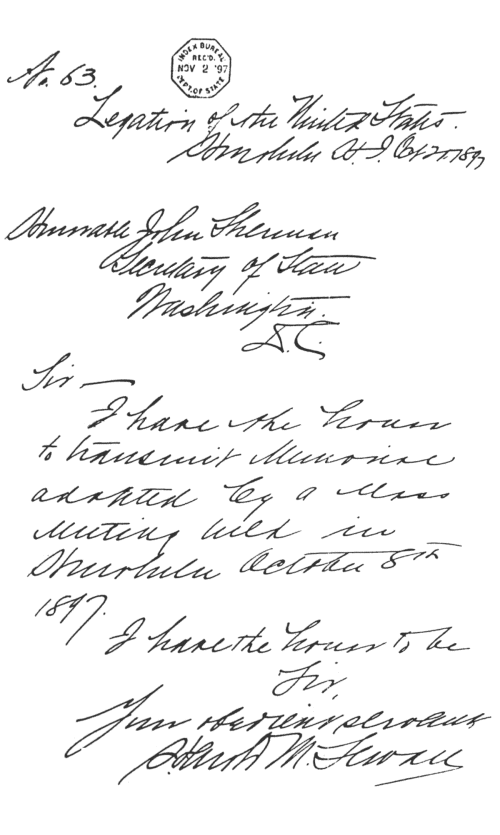 No. 63.
INDEX BUREAU
REC'D.
NOV 2 '97
DPT. OF STATE
Legation of the United States.
Honolulu H. I. Oct 1897
Honorable John Sherman
Secretary of State
Washington.
D.C.
Sir —
I have the honor
to transmit Memorial
adopted by a Mass
Meeting held in
Honolulu October 8th
1897.
I have the honor to be
Sir,
Your obedient servant
Harold M. Sewall